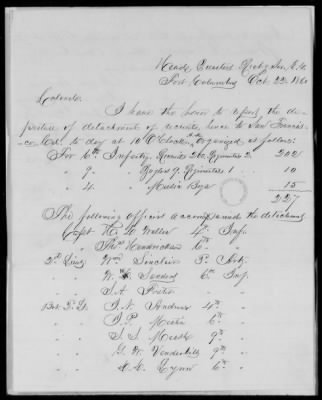 Head Quarters Rectg Ser, U.S.
Fort Columbus Oct. 22. 1860
Colonel:
I have the honor to report the de-
parture of detachment of recruits, hence to San Francis-
co, Cal. to day at 10 O'Clock A.M. organized as follows:
For 6th Infantry, Recruits 200. Regimentals 2. 202
" 9 " Bugles 9. Regimentals 1 10
" 4 " Music Boys 15
227
The following officers accompanied the detachment
Capt H. D. Wallen 4th Inf.
" Thos Hendrickson 6th "
2d Lieut Wm Sinclair 3d Arty.
" W. P. Sanders 6th Inf
" S. A. Foster "
Bvt 2d Lt J. N. Andrews 4th "
" J. P. Martin 6th "
" S. S. Marsh 9th "
" G. W. Vanderbilt 9th "
" A. G. Lynn 6th "